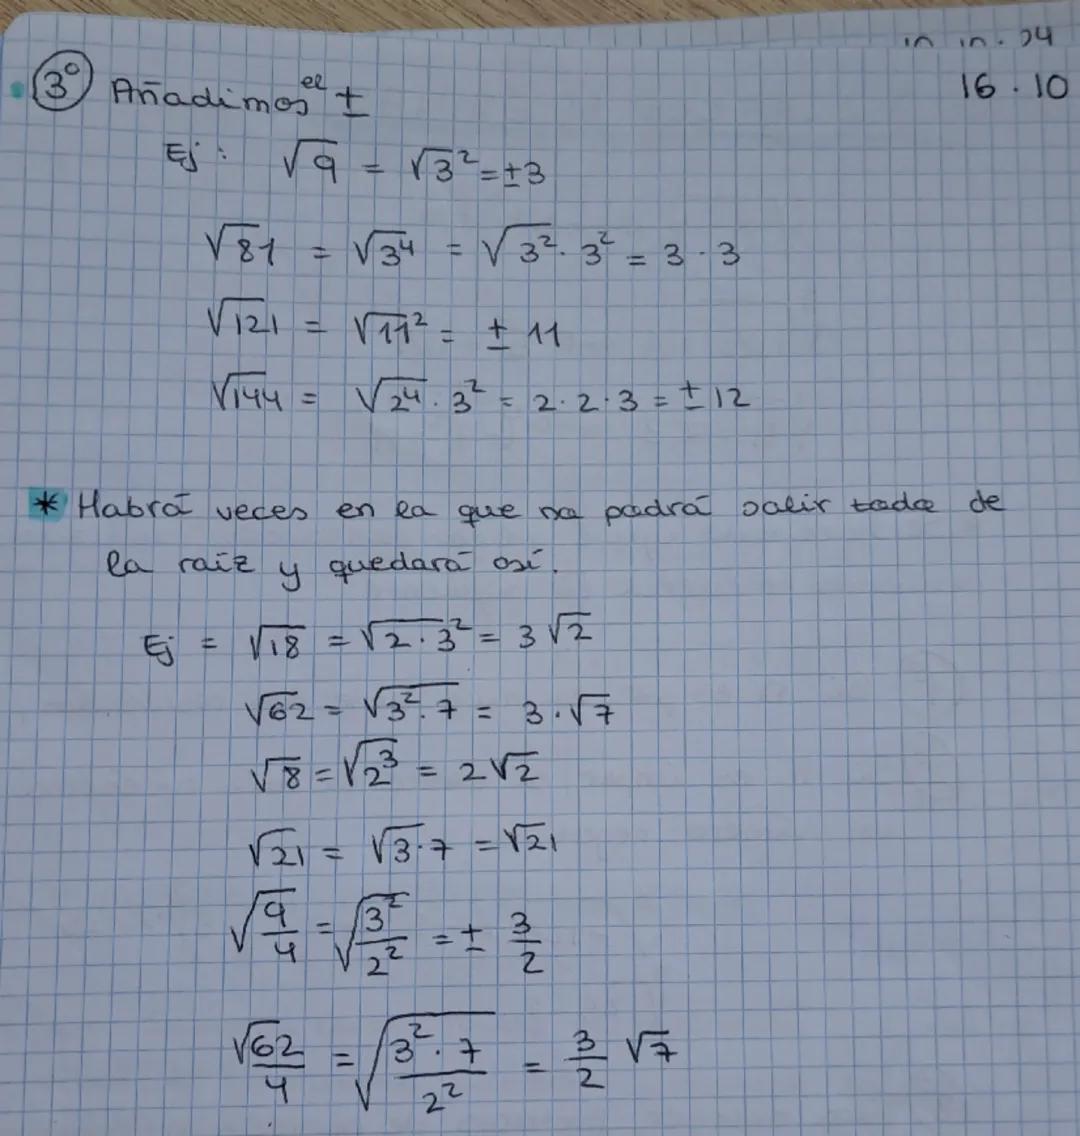 16.10
3º Añadimos el ±
Ej: √9 = √3² = ±3
√81 = √3⁴ = √3²·3² = 3·3
√121 = √11² = ± 11
√144 = √2⁴·3² = 2·2·3 = ±12
* Habrá veces en la que no podrá salir todo de
la raíz y quedará así.
Ej = √18 = √2·3² = 3√2
√62 = √3²·7 = 3·√7
√8 = √2³ = 2√2
√21 = √3·7 = √21
√9/4 = √3²/2² = ± 3/2
√62/4 = √3²·7/2² = 3/2 √7